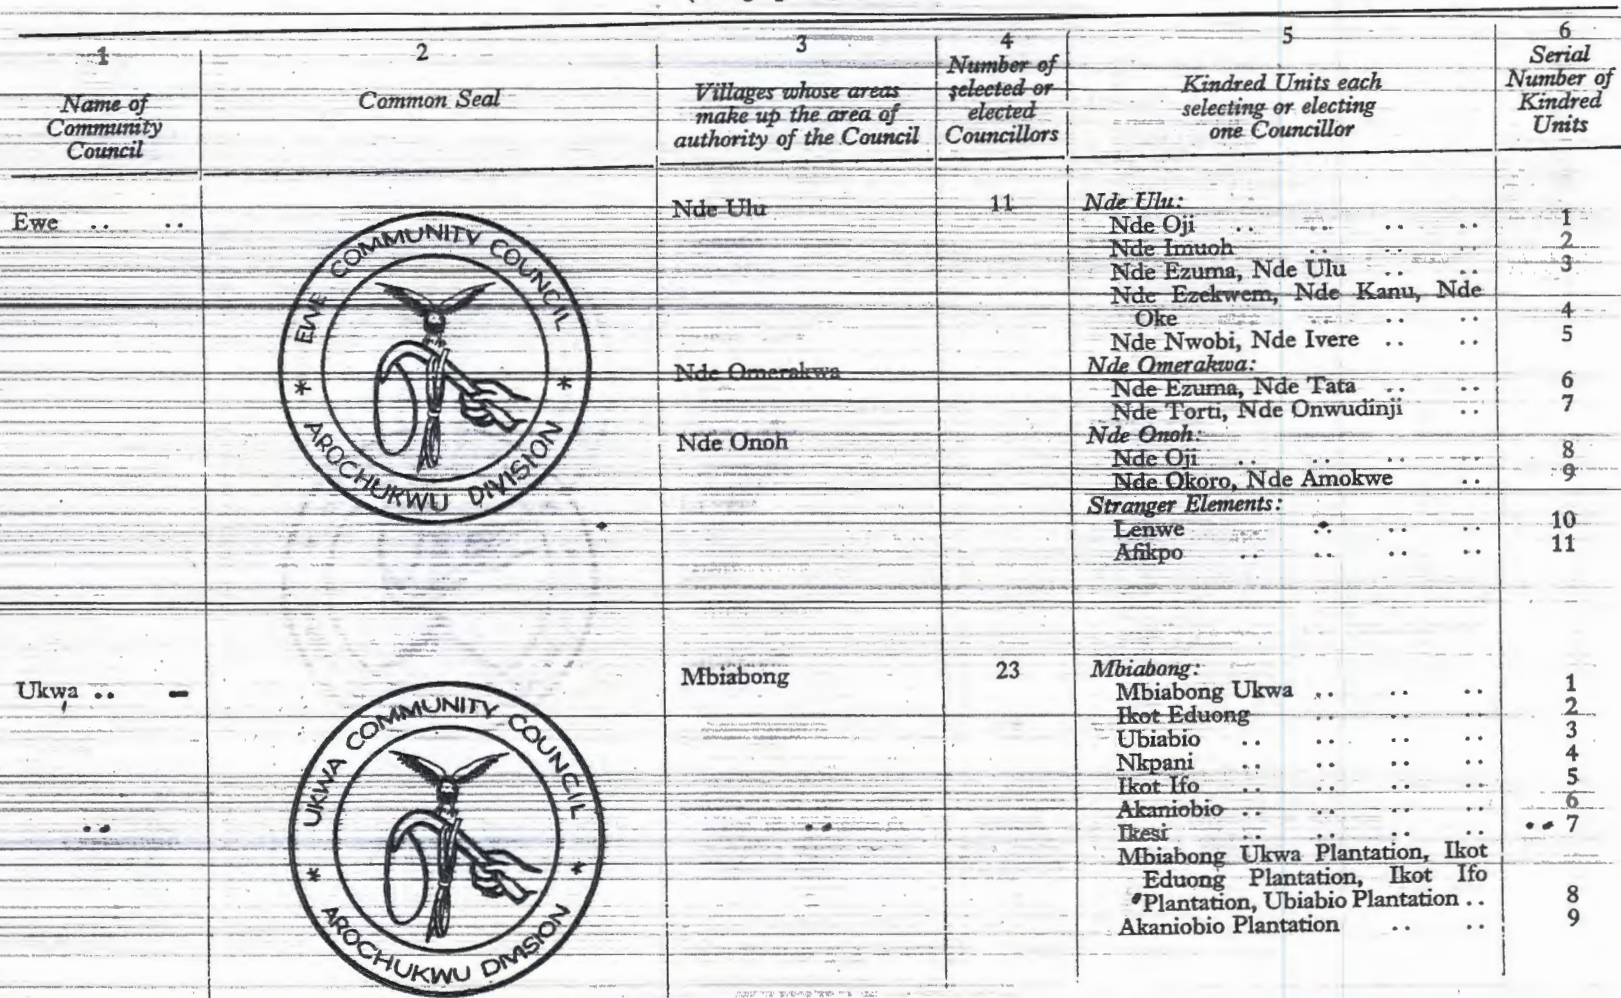 1 2 3 4 5 6
Name of Community Council
Common Seal
Villages whose areas make up the area of authority of the Council
Number of selected or elected Councillors
Kindred Units each selecting or electing one Councillor
Serial Number of Kindred Units
Ewe .. ..
EWE COMMUNITY COUNCIL
* AROCHUKWU DIVISION *
Nde Ulu 11 Nde Ulu:
Nde Oji .. .. .. .. 1
Nde Imuoh .. .. .. 2
Nde Ezuma, Nde Ulu .. .. 3
Nde Ezekwem, Nde Kanu, Nde
Oke .. .. .. .. 4
Nde Nwobi, Nde Ivere .. .. 5
Nde Omerakwa Nde Omerakwa:
Nde Ezuma, Nde Tata .. .. 6
Nde Torti, Nde Onwudinji .. 7
Nde Onoh Nde Onoh:
Nde Oji .. .. .. .. 8
Nde Okoro, Nde Amokwe .. 9
Stranger Elements:
Lenwe .. .. .. 10
Afikpo .. .. .. .. 11
Ukwa ..
UKWA COMMUNITY COUNCIL
* AROCHUKWU DIVISION *
Mbiabong 23 Mbiabong:
Mbiabong Ukwa .. .. .. 1
Ikot Eduong .. .. .. 2
Ubiabio .. .. .. .. 3
Nkpani .. .. .. .. 4
Ikot Ifo .. .. .. .. 5
Akaniobio .. .. .. .. 6
Ikesi .. .. .. .. 7
Mbiabong Ukwa Plantation, Ikot
Eduong Plantation, Ikot Ifo
Plantation, Ubiabio Plantation .. 8
Akaniobio Plantation .. .. 9